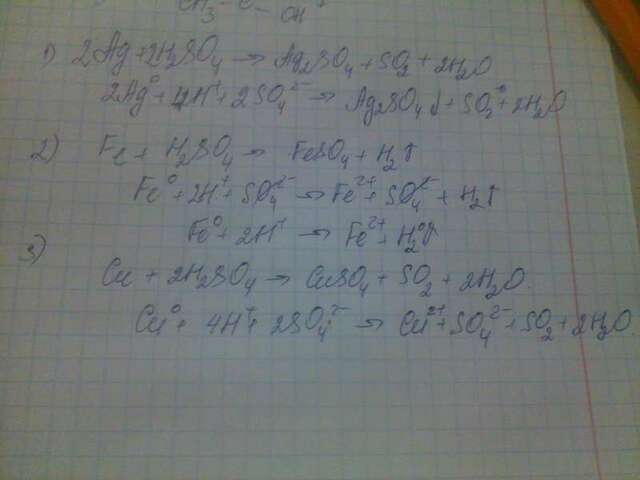 CH₃ - C - OH
1) 2Ag + 2H₂SO₄ → Ag₂SO₄ + SO₂ + 2H₂O
2Ag⁰ + 4H⁺ + 2SO₄²⁻ → Ag₂SO₄↓ + SO₂↑ + 2H₂O
2) Fe + H₂SO₄ → FeSO₄ + H₂↑
Fe⁰ + 2H⁺ + SO₄²⁻ → Fe²⁺ + SO₄²⁻ + H₂↑
Fe⁰ + 2H⁺ → Fe²⁺ + H₂⁰↑
3)
Cu + 2H₂SO₄ → CuSO₄ + SO₂ + 2H₂O.
Cu⁰ + 4H⁺ + 2SO₄²⁻ → Cu²⁺ + SO₄²⁻ + SO₂ + 2H₂O.